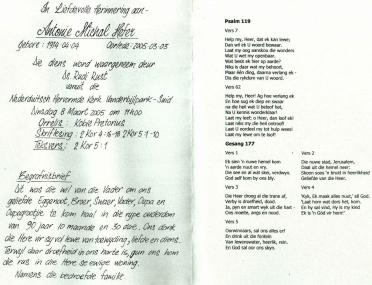 In Liefdevolle Herinnering aan-
Antonie Michal Hofer
Gebore : 1914-04-04 Oorlede : 2005-03-03
Die diens word waargeneem deur
Ds Rudi Rust
vanuit die
Nederduitsch Hervormde Kerk Vanderbijlpark - Suid
Dinsdag 8 Maart 2005 om 11h00
Orrelis : Kobie Pretorius
Skriflesing : 2 Kor 4:6-18 2 Kor 5:1-10
Teksvers : 2 Kor 5:1
Begrafnisbrief
Dit was die wil van die Vader om ons
geliefde Eggenoot, Broer, Swaer, Vader, Oupa en
Oupagrootjie te kom haal in die rype ouderdom
van 90 jaar 10 maande en 30 dae. Ons dank
die Here vir sy vol lewe van toewyding, liefde en diens.
Terwyl daar droefheid in ons harte is, gun ons hom
die rus in die Here se ewige woning.
Namens die bedroefde familie
Psalm 119
Vers 7
Help my, Heer, dat ek kan lewe;
Dan wil ek U woord bewaar.
Laat my oog aanskou die wonders
Wat U wet my openbaar.
Wat besok ek hier op aarde?
Niks is daar wat my behoort,
Maar één ding, daarna verlang ek -
Dis die rykdom van U woord.
Vers 62
Help my, Heer! Ag hoe verlang ek
En hoe sug ek diep en swaar
na die heil wat U beloof het,
Na U kennis wonderbaar!
Laat my leef; o Heer, dan loof ek!
Laat niks my die heil ontroof!
Laat U oordeel my tot hulp wees!
Laat my lewe om te loof!
Gesang 177
Vers 1
Ek sien 'n nuwe hemel kom
'n aarde nuut en vry.
Die see en al wat skei, verdwyn,
God self kom by ons bly.
Vers 2
Die nuwe stad, Jerusalem,
Daal uit die hemel neer;
Skoon soos 'n bruid in heerlikheid
Geliefde van die Heer.
Vers 3
Die Heer droog al die trane af,
Verby is droefheid, dood.
Ja, pyn en smart wyk uit die hart
Ons moeite, angs en nood.
Vers 4
"Kyk, Ek maak alles nuut," sê God.
"Laat hom wat dors het, kom.
En hy sal vind, hy is my kind
Ek is 'n God vir hom!"
Vers 5
Oorwinnaars, sal ons alles erf
En drink uit die fontein
Van lewenswater, heerlik, rein.
En God sal oor ons skyn.